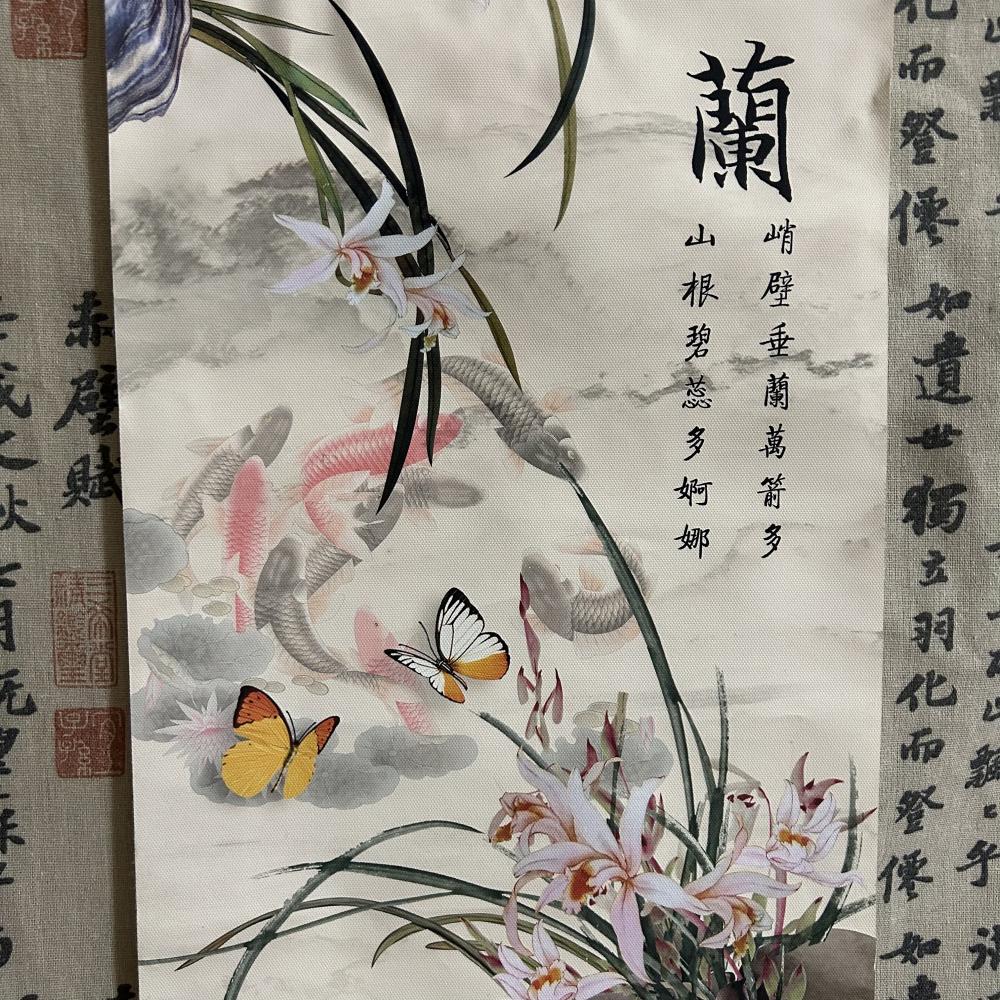 化而登僊如遺世獨立羽化而登僊如
蘭
峭壁垂蘭萬箭多
山根碧蕊多婀娜
赤壁賦
戌之秋七月既望